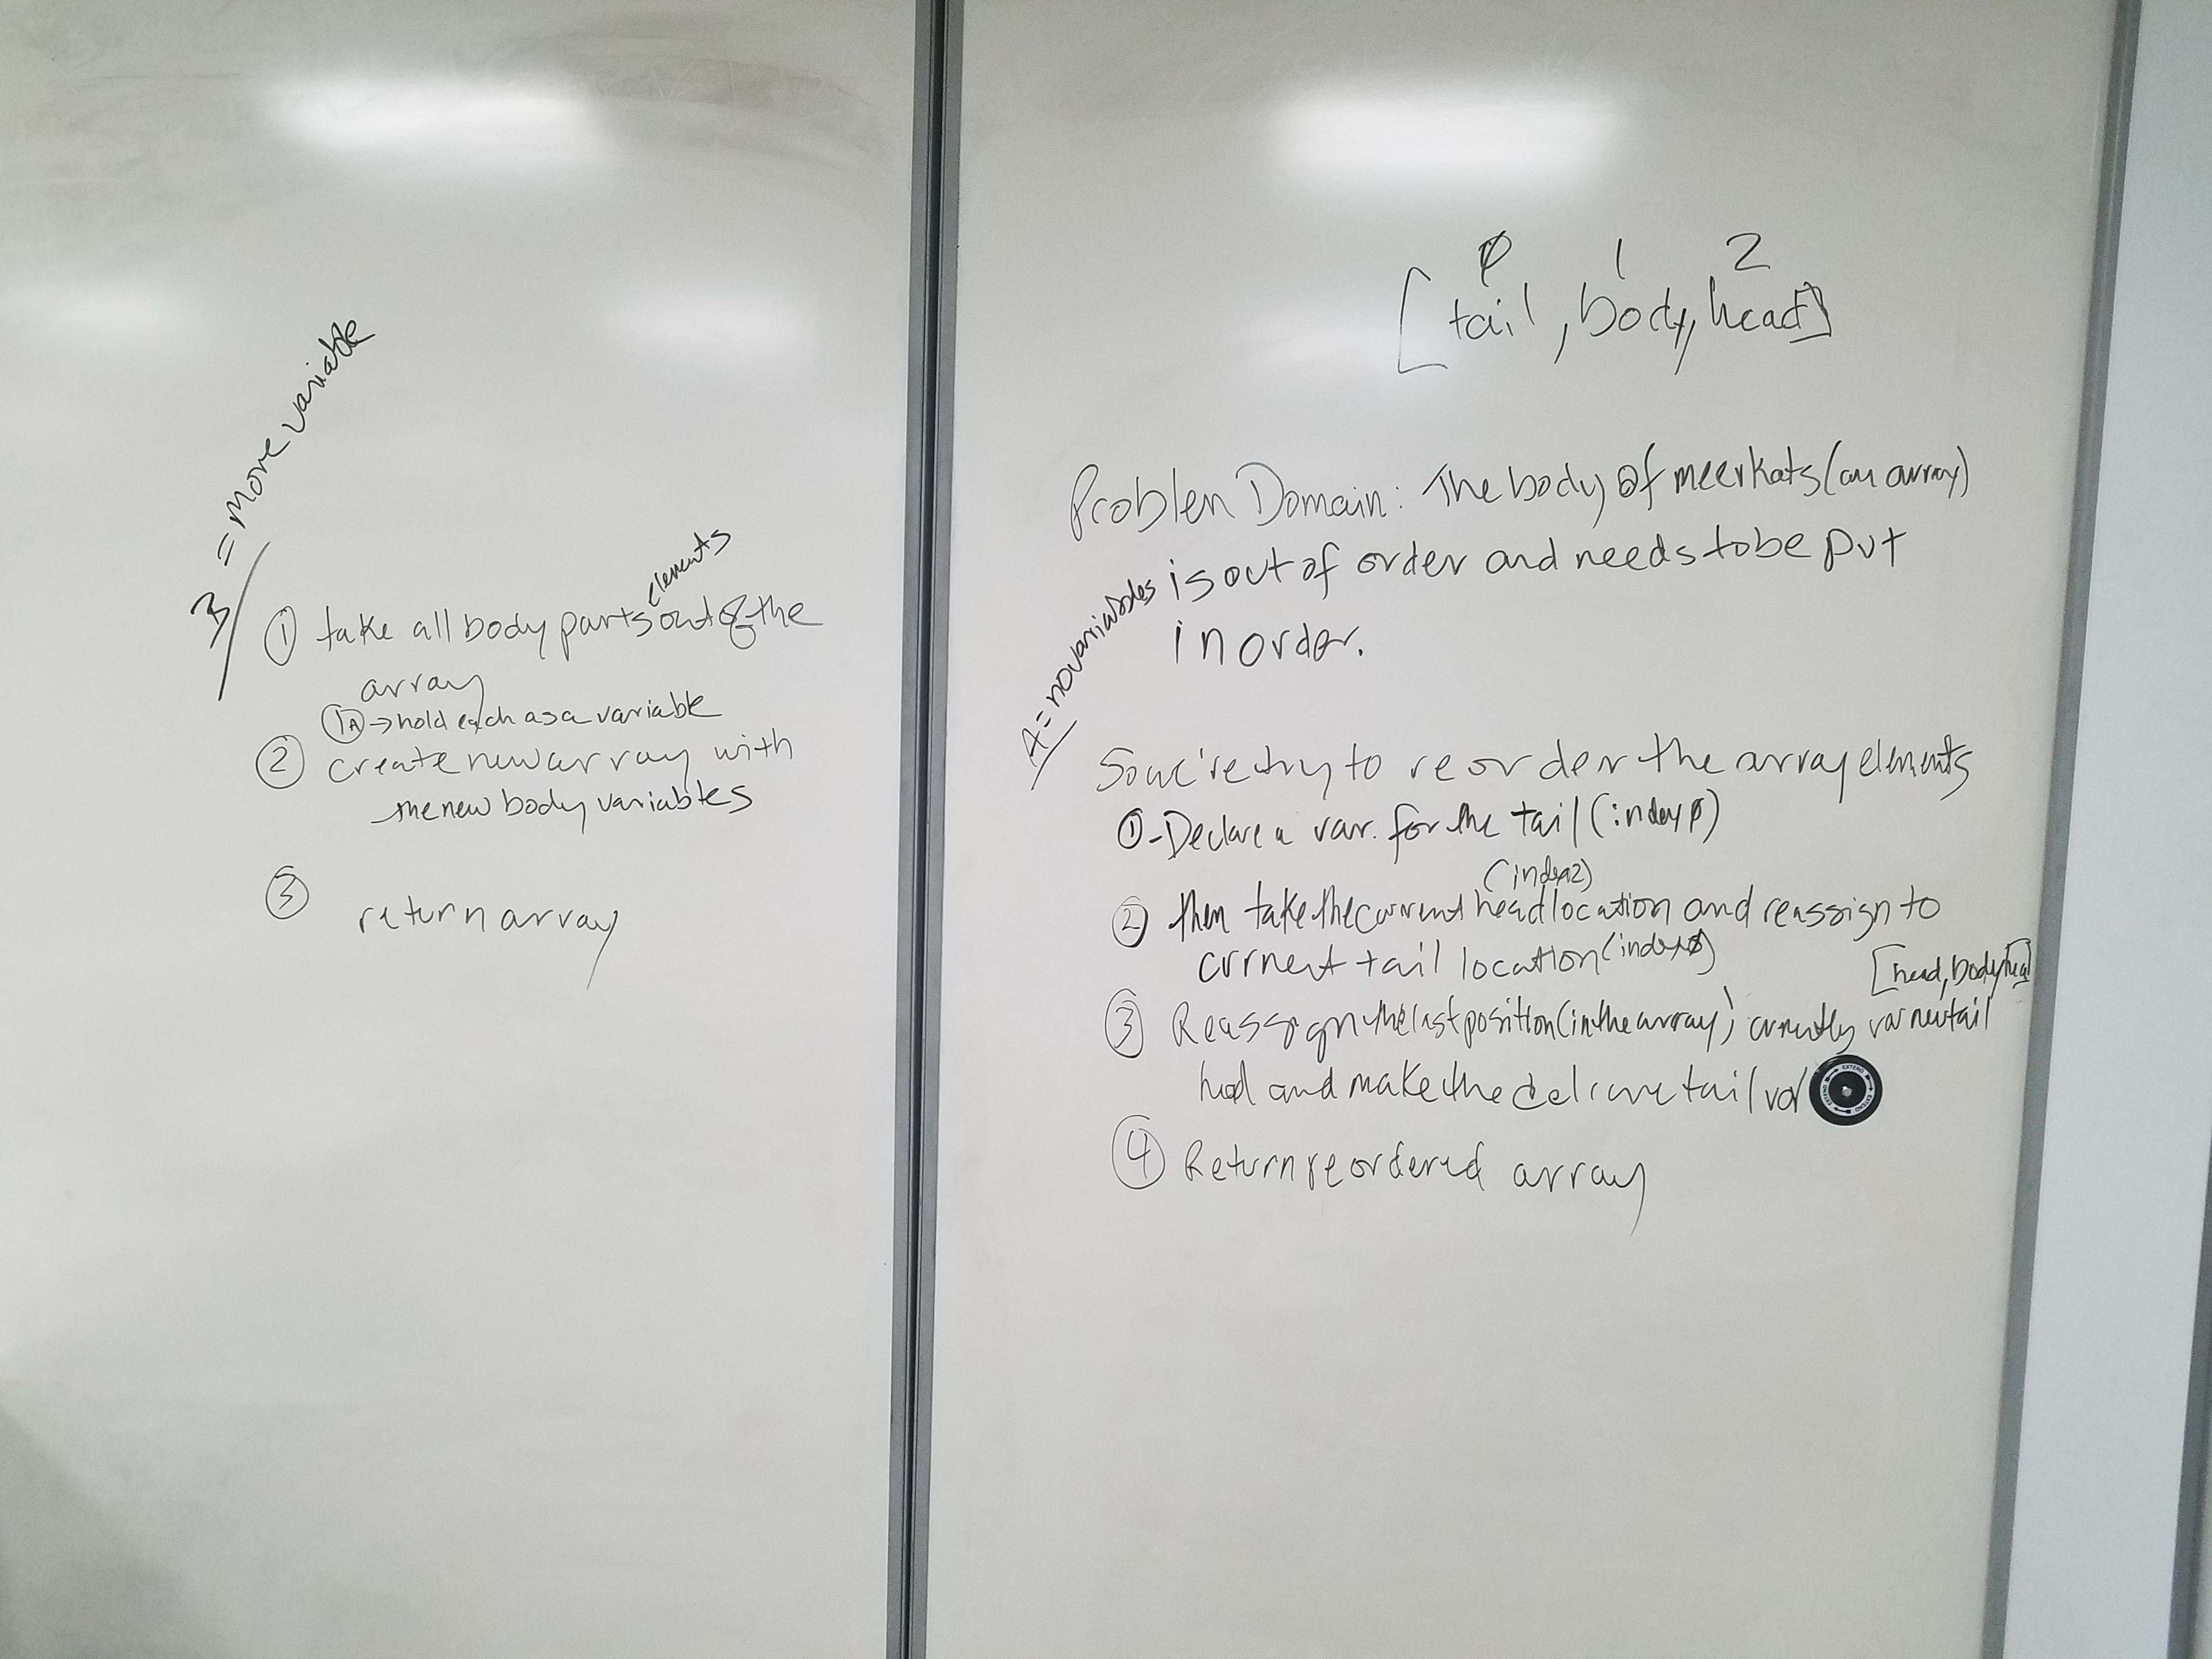 B = more variable
elements
① take all body parts out of the
array
1A → hold each as a variable
② create new array with
the new body variables
③ return array
0 1 2
[tail, body, head]
Problem Domain: The body of meerkats (an array)
is out of order and needs to be put
in order.
A = no variables
So we're try to reorder the array elements
① - Declare a var. for the tail (index 0)
(index 2)
② then take the current head location and reassign to
current tail location (index 0)
[head, body, hea]
③ Reassign the last position (in the array) currently var new tail
head and make the declare tail var
EXTEND EXTEND EXTEND
④ Return reordered array